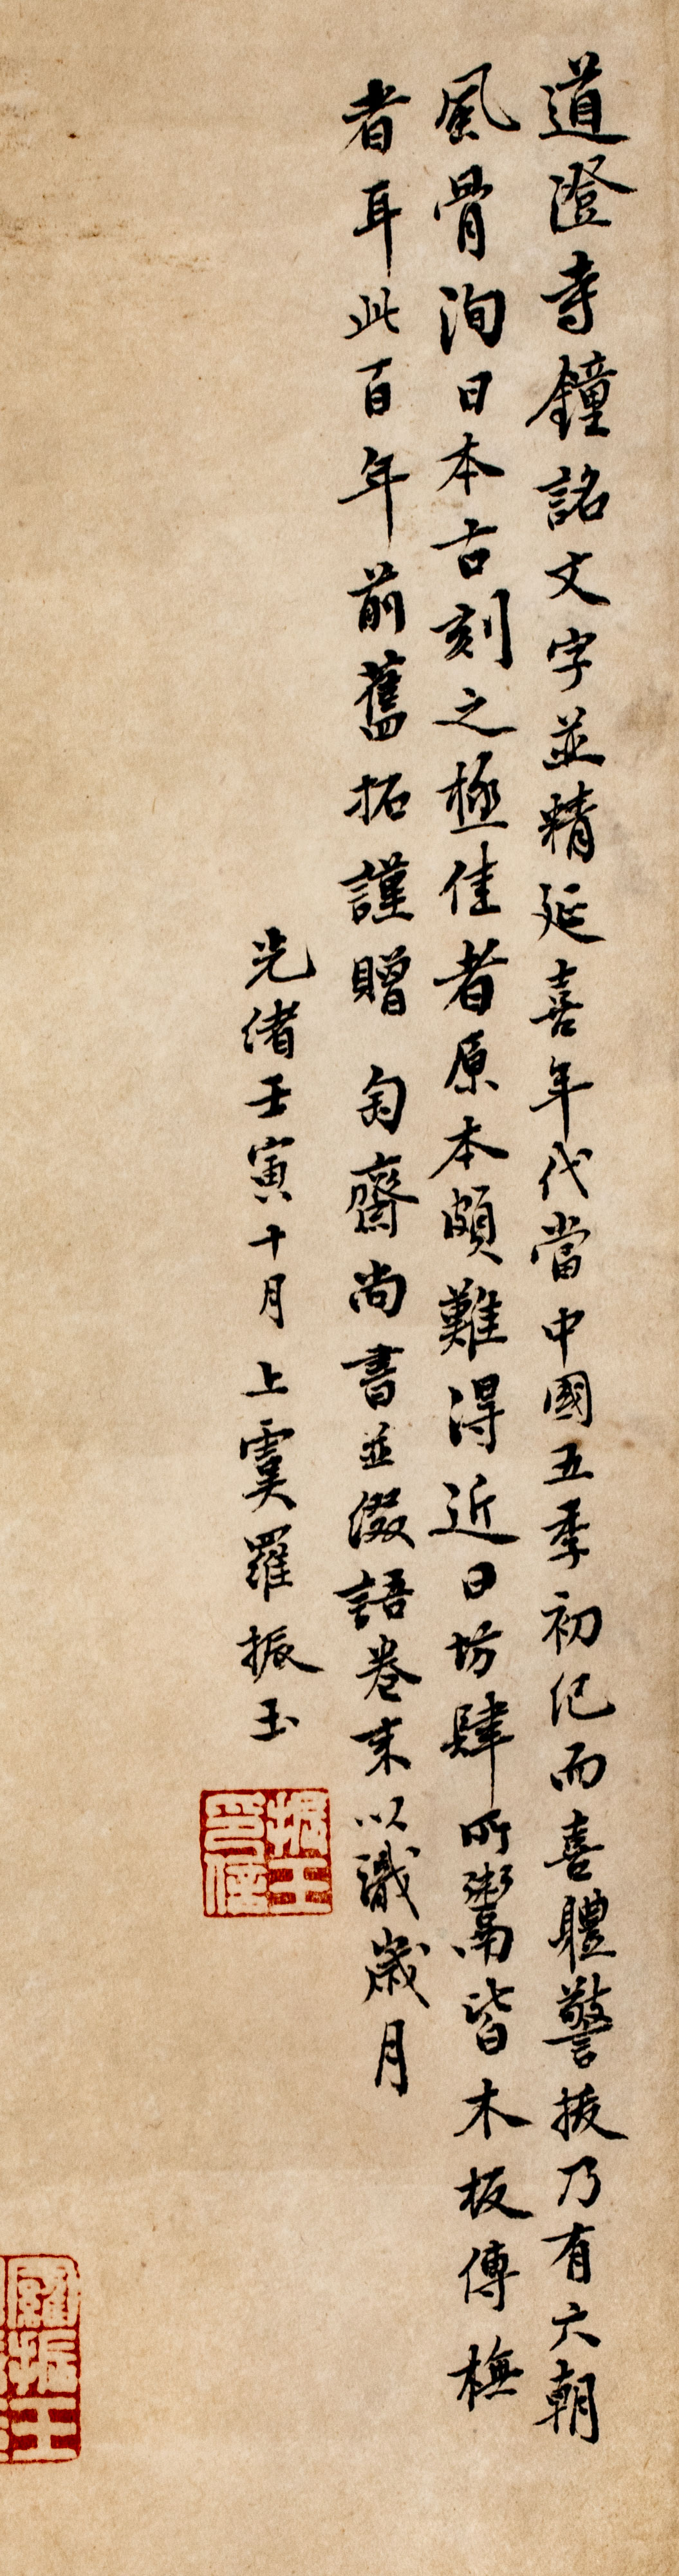 道澄寺鐘銘文字並精延喜年代當中國五季初紀而喜體警拔乃有六朝
風骨洵日本古刻之極佳者原本頗難得近日坊肆所鬻皆木板傳橅
者耳此百年前舊拓謹贈 匋齋尚書並綴語卷末以識歲月
光緒壬寅十月上虞羅振玉
振玉印信
羅振玉